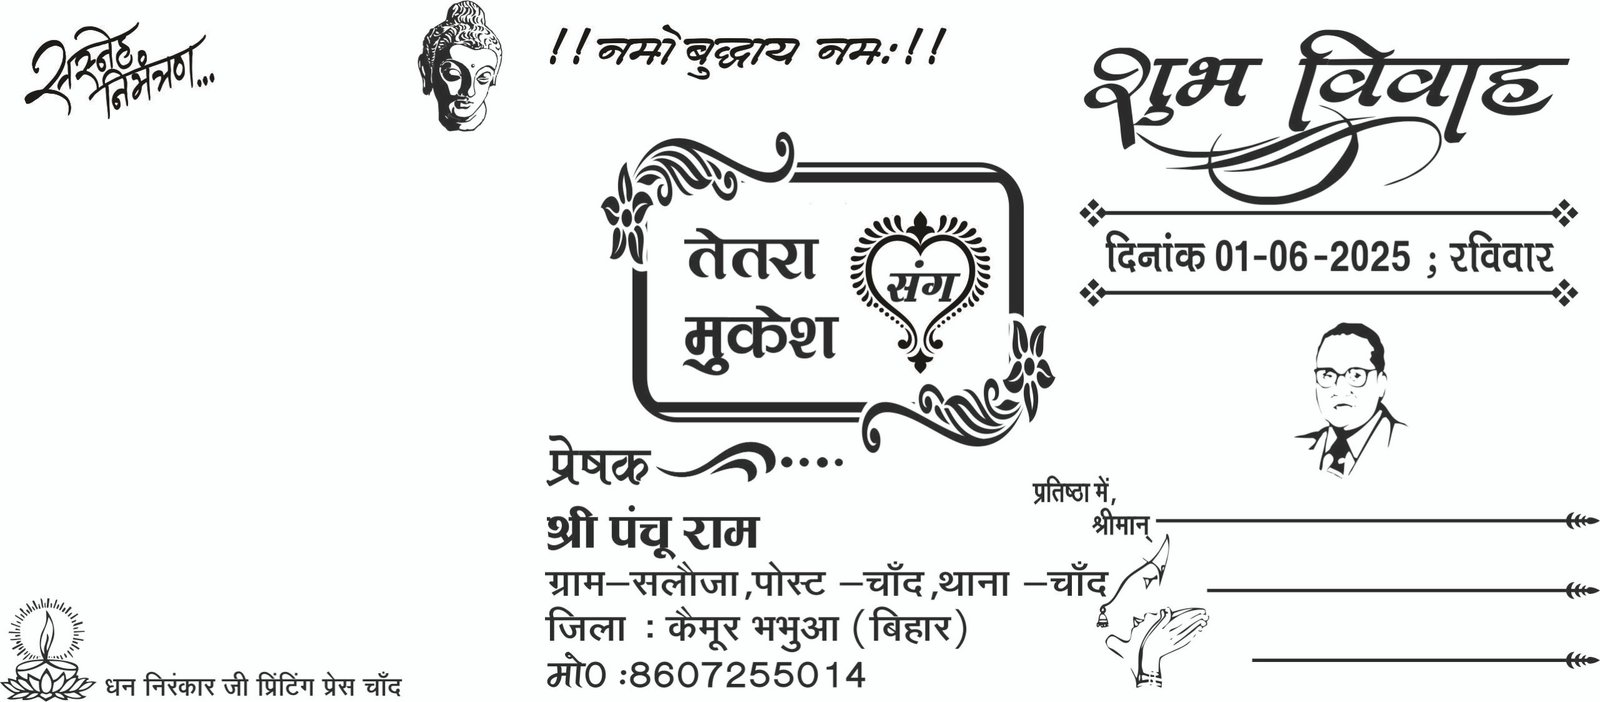 सस्नेह
निमंत्रण...
!! नमो बुद्धाय नमः !!
शुभ विवाह
दिनांक 01-06-2025 ; रविवार
तेतरा
संग
मुकेश
प्रेषक ....
श्री पंचू राम
ग्राम–सलौजा,पोस्ट –चाँद,थाना –चाँद
जिला : कैमूर भभुआ (बिहार)
मो0 :8607255014
प्रतिष्ठा में,
श्रीमान्
धन निरंकार जी प्रिंटिंग प्रेस चाँद